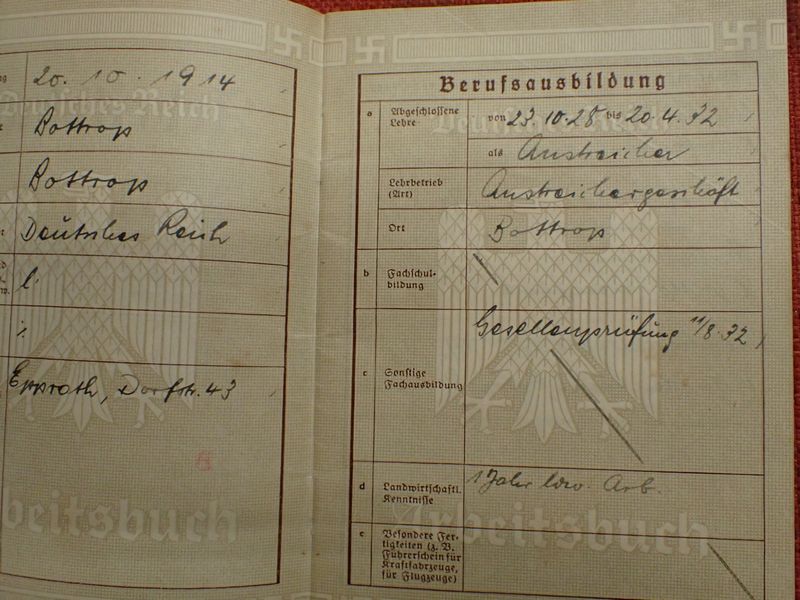 20. 10. 1914
Bottrop
Bottrop
Deutsches Reich
l.
Epprath, Dorfstr. 43
Deutsches Reich
Arbeitsbuch
Berufsausbildung
a Abgeschlossene Lehre
von 23.10.28 bis 20.4.32
als Anstreicher
Lehrbetrieb (Art)
Anstreichergeschäft
Ort
Bottrop
b Fachschul-
bildung
Gesellenprüfung 11/8.32
c Sonstige
Fachausbildung
d Landwirtschaftl.
Kenntnisse
1 Jahr ldw. Arb.
e Besondere Fer-
tigkeiten (z. B.
Führerschein für
Kraftfahrzeuge,
für Flugzeuge)
Deutsches Reich
Arbeitsbuch